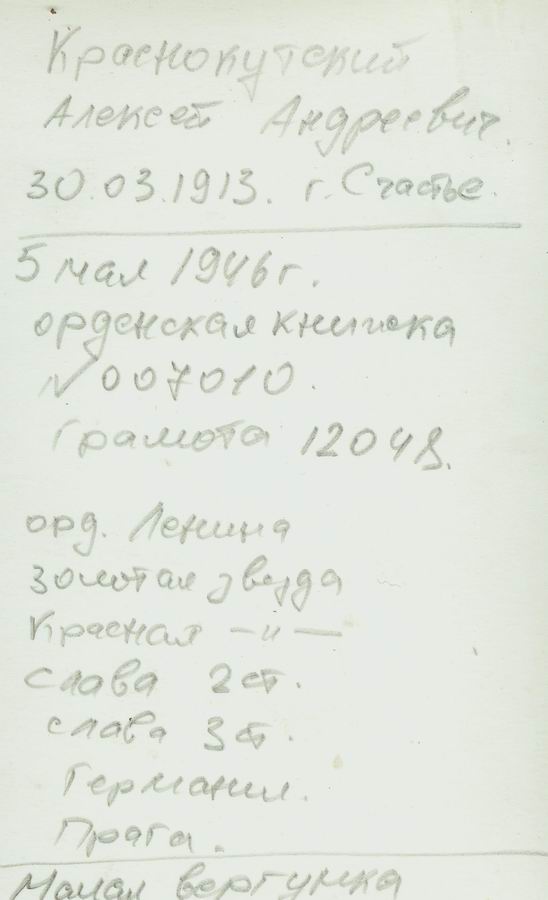 Краснокутский
Алексей Андреевич.
30.03.1913. г. Счастье.
5 мая 1946 г.
орденская книжка
№ 007010.
Грамота 12048.
орд. Ленина
Золотая звезда
Красная —"—
Слава 2 ст.
слава 3 ст.
Германия.
Прага.
Малая вергунка